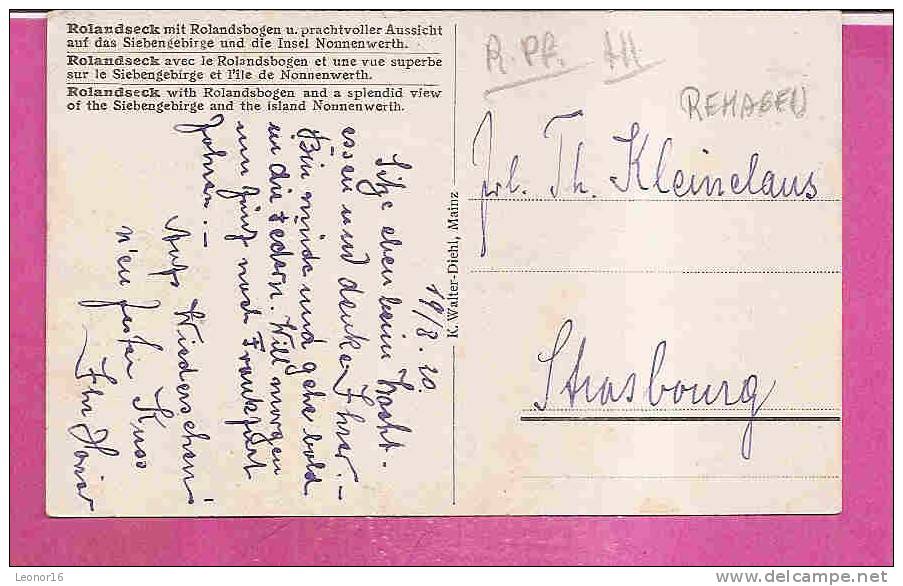 Rolandseck mit Rolandsbogen u. prachtvoller Aussicht
auf das Siebengebirge und die Insel Nonnenwerth.
Rolandseck avec le Rolandsbogen et une vue superbe
sur le Siebengebirge et l'île de Nonnenwerth.
Rolandseck with Rolandsbogen and a splendid view
of the Siebengebirge and the island Nonnenwerth.
19/8.20.
Sitze eben beim Nacht-
essen und denke Ihrer. –
Bin müde und gehe bald
in die Federn. Will morgen
um fünf nach Frankfurt
fahren. –
Aufs Wiedersehen
n'en fester Kuss
Ihr
K. Walter-Diehl, Mainz
R. PF. AH
REMAGEN
Frl. Th. Kleinclaus
Strasbourg
Leonor16
www.delcampe.net